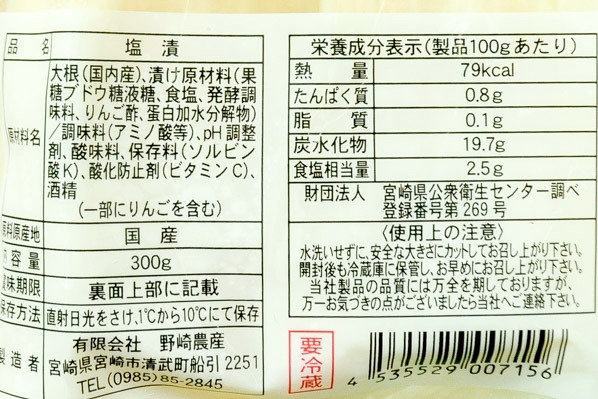 品名 塩漬
原材料名 大根(国内産)、漬け原材料(果
糖ブドウ糖液糖、食塩、発酵調
味料、りんご酢、蛋白加水分解物)
/調味料(アミノ酸等)、pH調整
剤、酸味料、保存料(ソルビン
酸K)、酸化防止剤(ビタミンC)、
酒精
(一部にりんごを含む)
原料原産地 国産
内容量 300g
賞味期限 裏面上部に記載
保存方法 直射日光をさけ、1℃から10℃にて保存
製造者 有限会社 野崎農産
宮崎県宮崎市清武町船引2251
TEL(0985)85-2845
栄養成分表示(製品100gあたり)
熱量 79kcal
たんぱく質 0.8g
脂質 0.1g
炭水化物 19.7g
食塩相当量 2.5g
財団法人 宮崎県公衆衛生センター調べ
登録番号第269号
〈使用上の注意〉
水洗いせずに、安全な大きさにカットしてお召し上がり下さい。
開封後も冷蔵庫に保管し、お早めにお召し上がり下さい。
当社製品の品質には万全を期しておりますが、
万一お気づきの点がございましたら当社へご連絡下さい。
要冷蔵
4 535529 007156